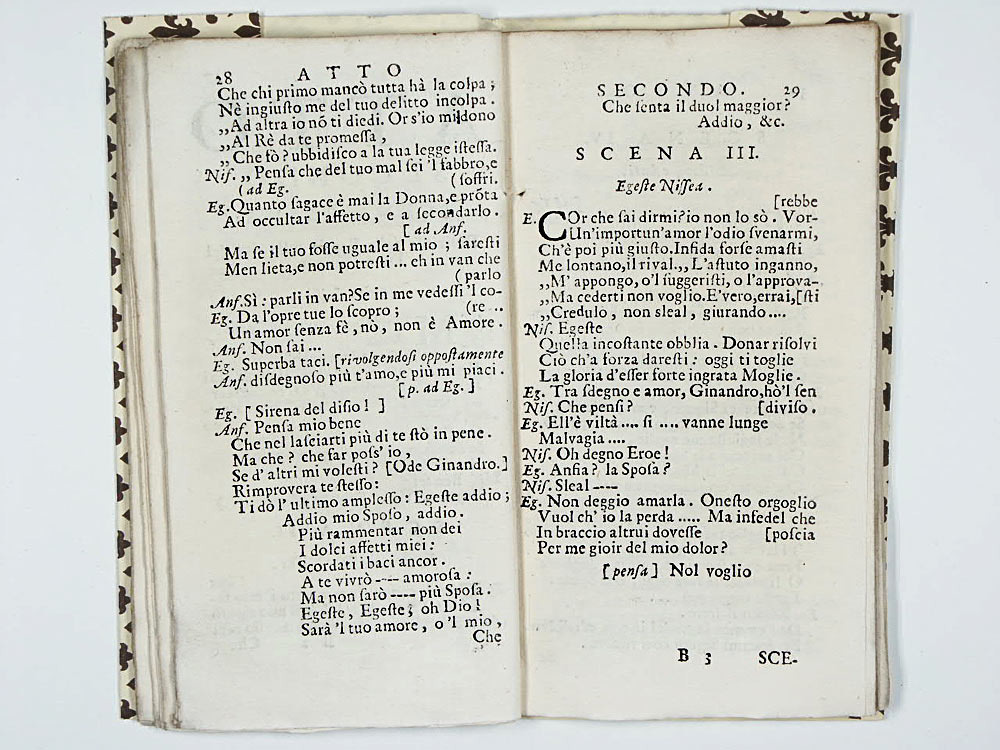 28 ATTO
Che chi primo mancò tutta hà la colpa;
Nè ingiuſto me del tuo delitto incolpa.
„Ad altra io nõ ti diedi. Or s'io mi dono
„Al Rè da te promeſſa,
„Che fò? ubbidiſco a la tua legge iſteſſa.
Niſ. „Penſa che del tuo mal ſei 'l fabbro, e
(ad Eg. (ſoffri.
Eg. Quanto ſagace è mai la Donna, e prõta
Ad occultar l'affetto, e a ſecondarlo.
[ad Anf.
Ma ſe il tuo foſſe uguale al mio; ſareſti
Men lieta, e non potreſti ... eh in van che
(parlo
Anf. Sì: parli in van? Se in me vedeſſi 'l co-
Eg. Da l'opre tue lo ſcopro; (re ..
Un amor ſenza fè, nò, non è Amore.
Anf. Non ſai ...
Eg. Superba taci. [rivolgendoſi oppoſtamente
Anf. diſdegnoſo più t'amo, e più mi piaci.
[p. ad Eg.]
Eg. [Sirena del diſio!]
Anf. Penſa mio bene
Che nel laſciarti più di te ſtò in pene.
Ma che? che far poſs' io,
Se d' altri mi voleſti? [Ode Ginandro.]
Rimprovera te ſteſſo:
Ti dò l' ultimo ampleſſo: Egeſte addio;
Addio mio Spoſo, addio.
Più rammentar non dei
I dolci affetti miei:
Scordati i baci ancor.
A te vivrò ---- amoroſa:
Ma non ſarò ---- più Spoſa.
Egeſte, Egeſte; oh Dio!
Sarà 'l tuo amore, o 'l mio,
Che
SECONDO. 29
Che ſenta il duol maggior?
Addio, &c.
SCENA III.
Egeſte Niſſea.
[rebbe
E. COr che ſai dirmi? io non lo sò. Vor-
Un'importun'amor l'odio ſvenarmi,
Ch'è poi più giuſto. Infida forſe amaſti
Me lontano, il rival. „L'aſtuto inganno,
„M' appongo, o'l ſuggeriſti, o l'approva-
„Ma cederti non voglio. E'vero, errai, [ſti
„Credulo, non sleal, giurando ....
Niſ. Egeſte
Quella incoſtante obblia. Donar riſolvi
Ciò ch'a forza dareſti: oggi ti toglie
La gloria d'eſſer forte ingrata Moglie.
Eg. Tra ſdegno e amor, Ginandro, hò'l ſen
Niſ. Che penſi? [diviſo.
Eg. Ell'è viltà .... sì .... vanne lunge
Malvagia ....
Niſ. Oh degno Eroe!
Eg. Anſia? la Spoſa?
Niſ. Sleal ----
Eg. Non deggio amarla. Oneſto orgoglio
Vuol ch' io la perda ..... Ma infedel che
In braccio altrui doveſſe [poſcia
Per me gioir del mio dolor?
[penſa] Nol voglio
B 3 SCE-